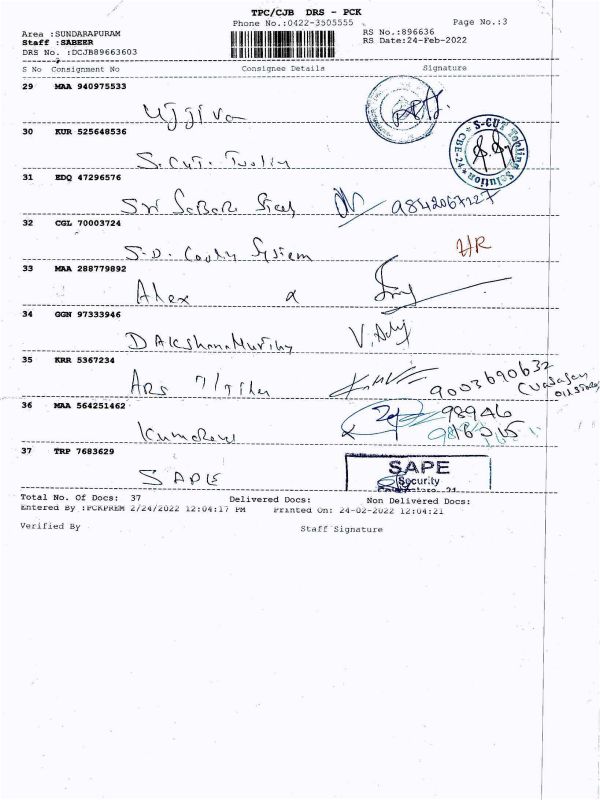 TPC/CJB DRS - PCK
Phone No.:0422-3505555 Page No.:3
Area :SUNDARAPURAM RS No.:896636
Staff :SABEER RS Date:24-Feb-2022
DRS No. :DCJB89663603
S No Consignment No Consignee Details Signature
29 MAA 940975533
Ujjiva
30 KUR 525648536
S-CUT Tooling Solution CBE-24
S.CUT. Toolin
31 EDQ 47296576
9842067127
32 CGL 70003724
S.D. System HR
33 MAA 288779892
Alex
34 GGN 97333946
DAkshanaMurthy
35 KRR 5367234
9003690632
ARS
36 MAA 564251462
98946
Kumaran
37 TRP 7683629
SAPE
Security
SAPE
Total No. Of Docs: 37 Delivered Docs: Non Delivered Docs:
Entered By :PCKPREM 2/24/2022 12:04:17 PM Printed On: 24-02-2022 12:04:21
Verified By Staff Signature